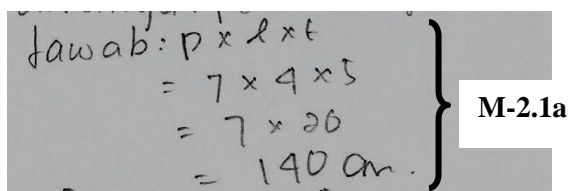 Jawab: p x l x t
= 7 x 4 x 5
= 7 x 20
= 140 cm.
M-2.1a